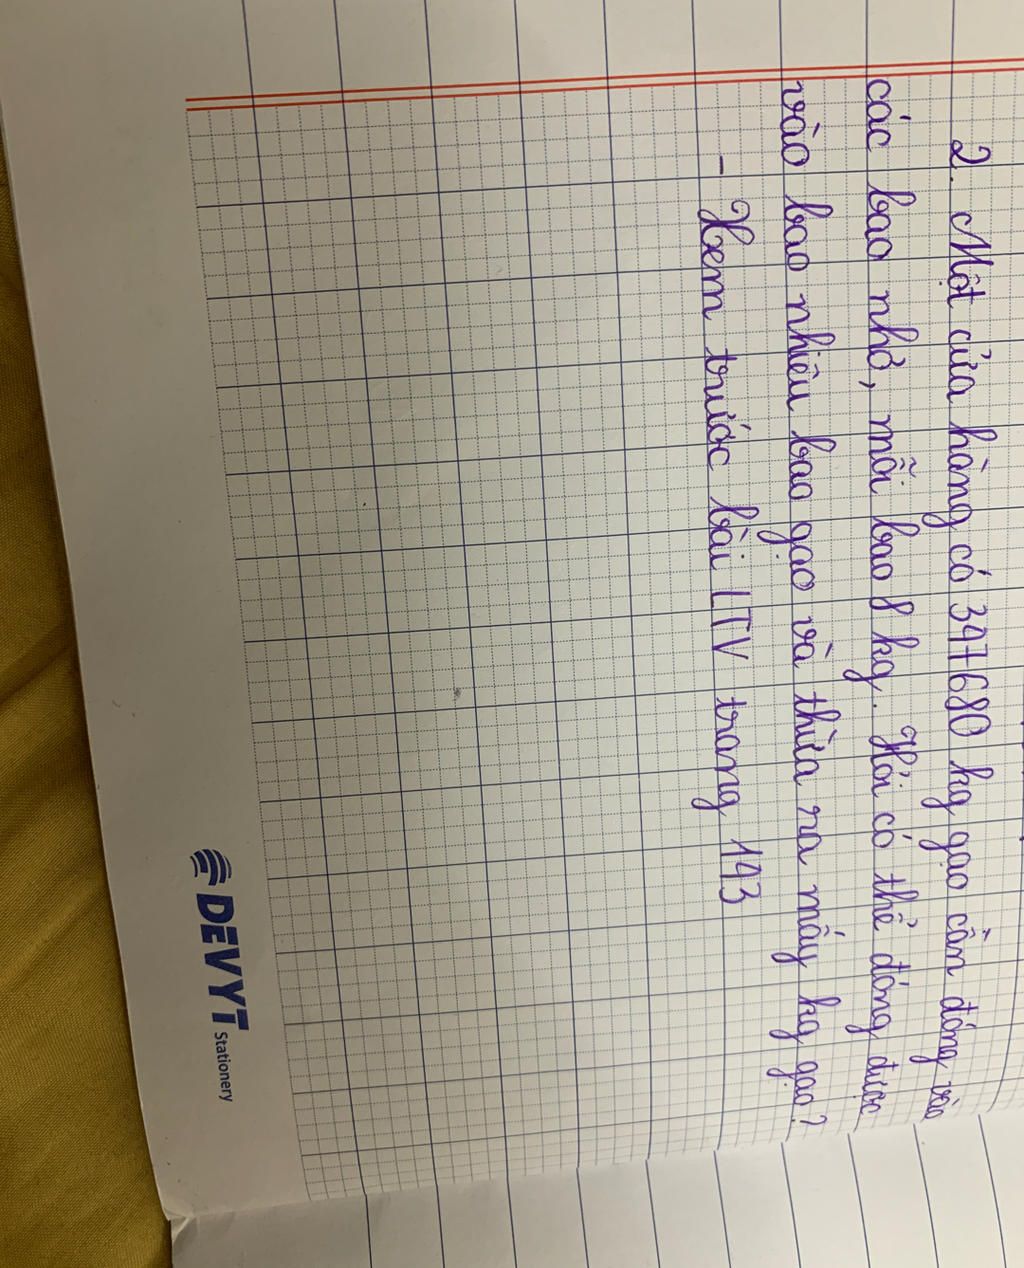 2. Một cửa hàng có 397680 kg gạo cần đóng vào
các bao nhỏ, mỗi bao 8 kg. Hỏi có thể đóng được
vào bao nhiêu bao gạo và thừa ra mấy kg gạo?
- Xem trước bài LTV trang 193
DEVYT Stationery